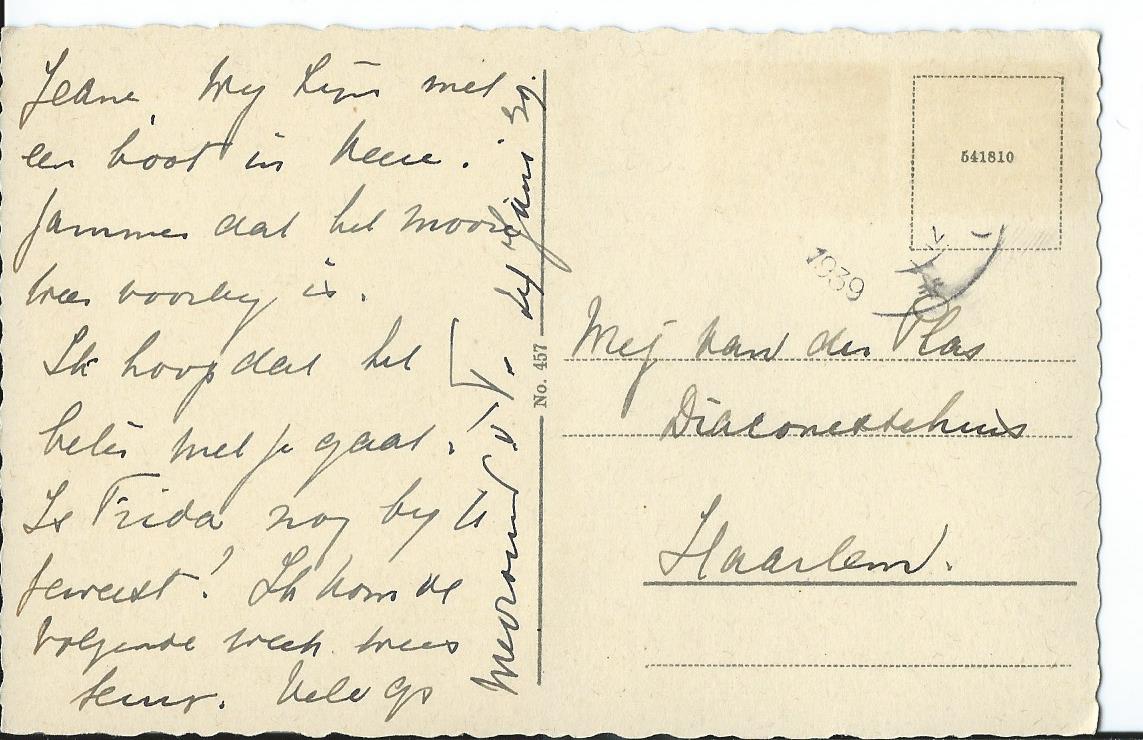 Jeane. Wij zijn met
een boot in Veere.
Jammer dat het mooie
weer voorbij is.
Ik hoop dat het
beter met je gaat!
Is Frida nog bij U
geweest? Ik kom de
volgende week weer
terug. Vele gr
Mevrouw v. V.
No. 457
541810
1939
Mej van der Plas
Diaconessehuis
Haarlem.